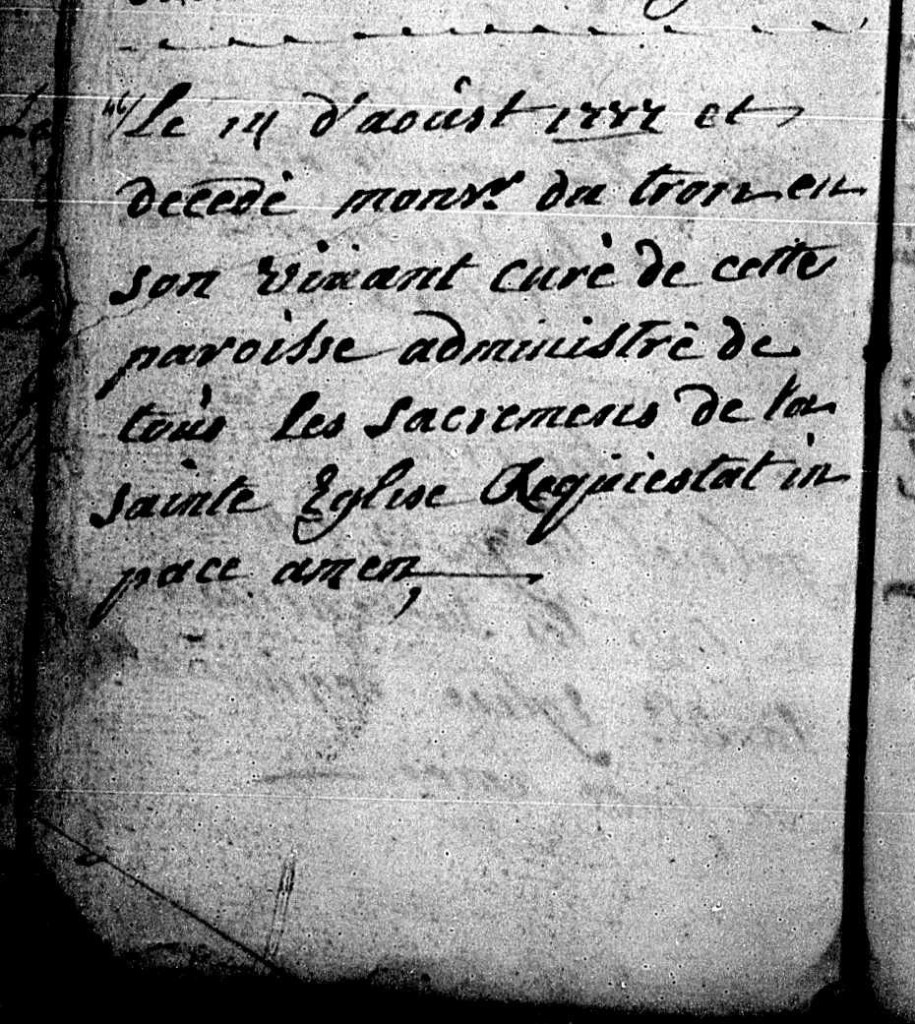 46/ Le 14 d'aoûst 1777 et
decedé monsr. du tron en
son vivant curé de cette
paroisse administré de
toùs les sacremens de la
sainte Eglise Requiestat in
pace amen,